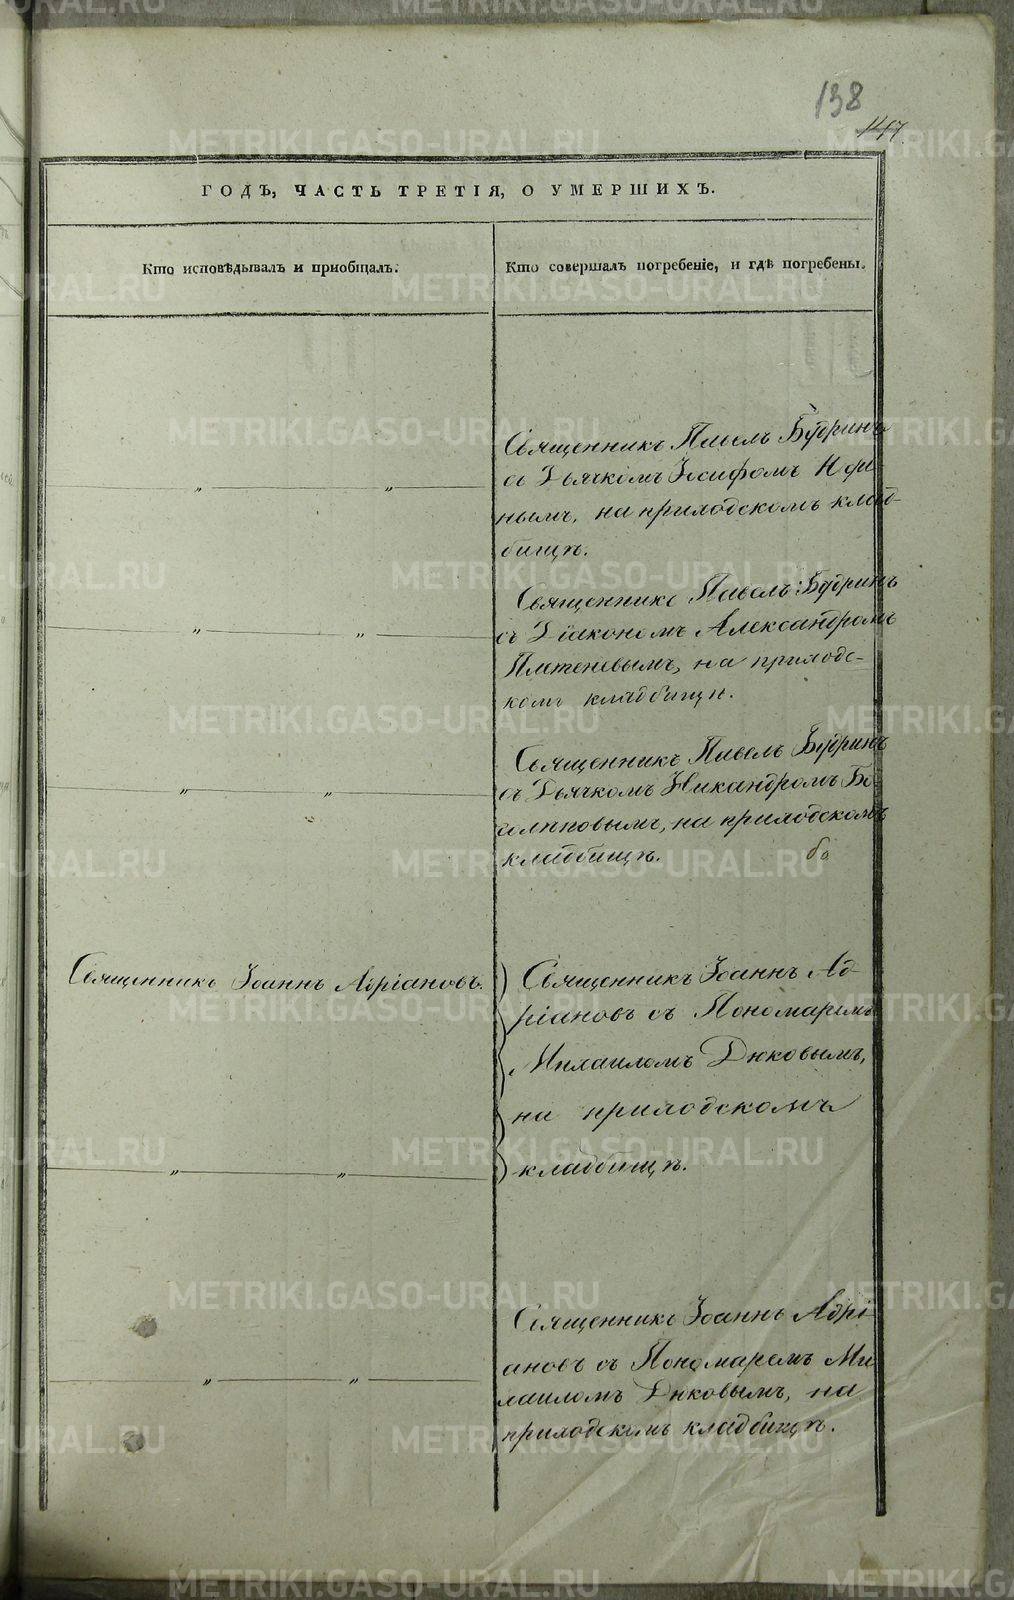 138
147
ГОДЪ, ЧАСТЬ ТРЕТІЯ, О УМЕРШИХЪ.
Кто исповѣдывалъ и приобщалъ.
Кто совершалъ погребеніе, и гдѣ погребены.
Священникъ Павелъ Будринъ
съ Дьячкомъ Іосифомъ
нымъ, на приходскомъ клад-
бищѣ.
„ „
Священникъ Павелъ Будринъ
съ Діакономъ Александромъ
Плетеневымъ, на приходс-
комъ кладбищѣ.
„ „
Священникъ Павелъ Будринъ
съ Дьячкомъ Никандромъ Бо-
голѣповымъ, на приходскомъ
кладбищѣ.
„ „
Священникъ Іоаннъ Адріановъ.
Священникъ Іоаннъ Ад-
ріановъ съ Пономаремъ
Михаиломъ Дюковымъ,
на приходскомъ
кладбищѣ.
„ „
Священникъ Іоаннъ Адрі-
ановъ съ Пономаремъ Ми-
хаиломъ Дюковымъ, на
приходскомъ кладбищѣ.
„ „
METRIKI.GASO-URAL.RU